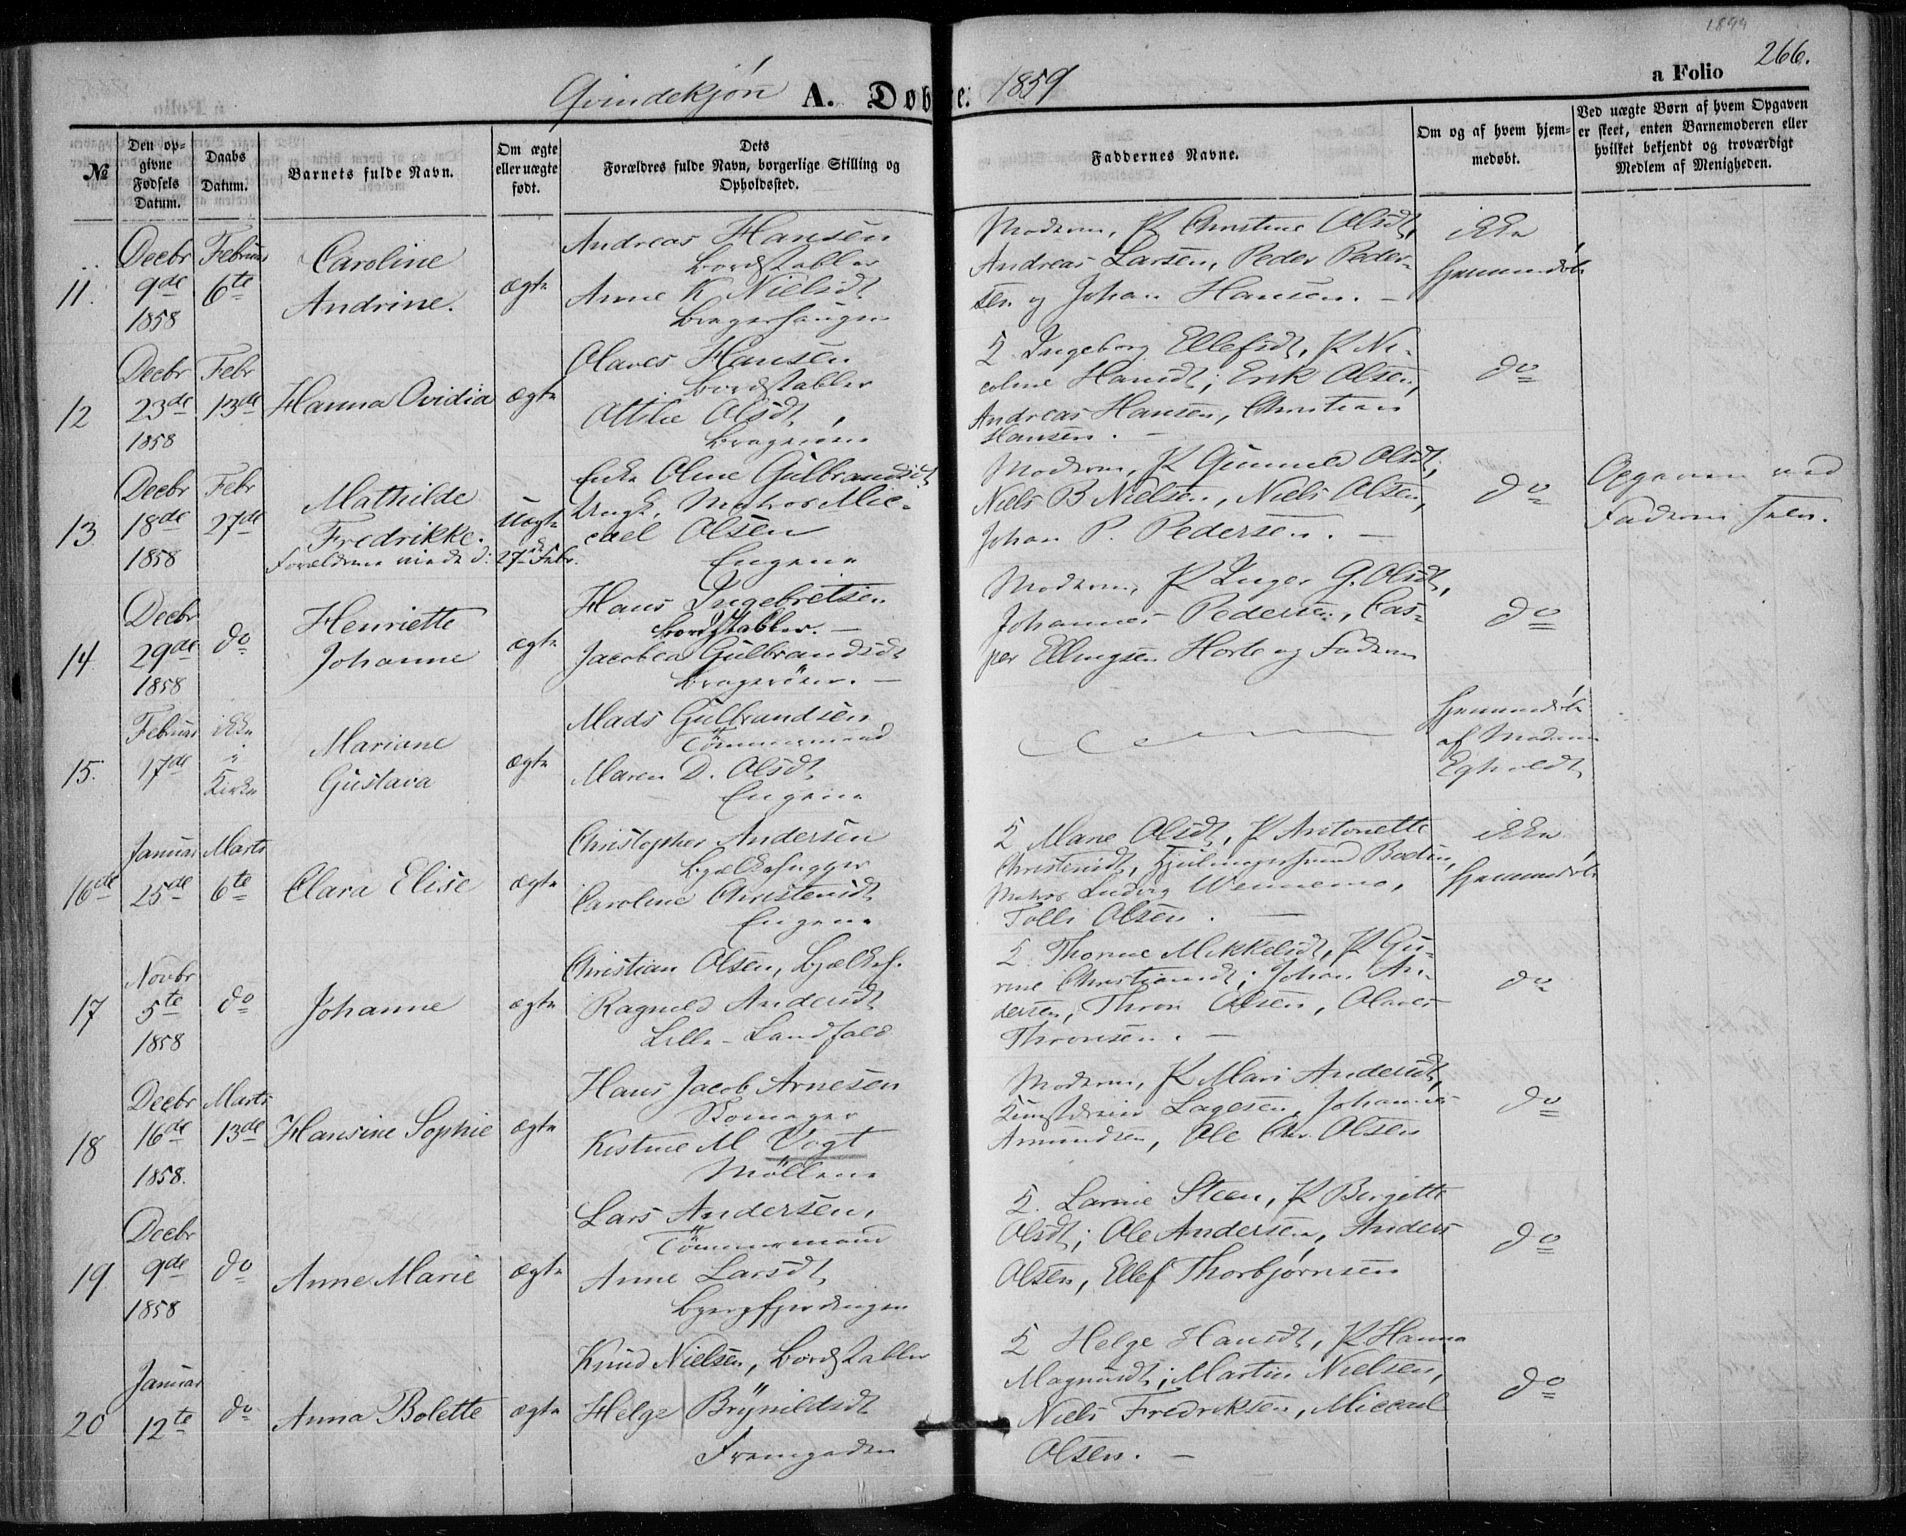 1899
266.
a Folio
Qvindekjøn A. Døbte: 1859
№
Den op-
givne
Fødsels
Datum.
Daabs
Datum.
Barnets fulde Navn.
Om ægte
eller uægte
født.
Dets
Forældres fulde Navn, borgerlige Stilling og
Opholdssted.
Faddernes Navne.
Om og af hvem hjem-
medøbt.
Ved uægte Børn af hvem Opgaven
er skeet, enten Barnemoderen eller
hvilket bekjendt og troværdigt
Medlem af Menigheden.
11.
Decbr
9de
1858
Februar
6te
Caroline
Andrine.
ægte
Andreas Hansen
Bordstabler
Anne K Nielsdt
Bragerhaugen
Moderen, P Christine Olsdt,
Andreas Larsen, Peder Peder-
sen og Johan Hansen. —
ikke
Hjemmedøbt
12
Decbr
23de
1858
Febr
13de
Hanna Ovidia
ægte
Olaves Hansen
Bordstabler
Attilie Olsdt,
Bragerøen
2 Ingeborg Ellefsdt, P Ni-
coline Hansdt; Erik Olsen,
Andreas Hansen, Christian
Hansen. —
do
13
Decbr
18de
1858
Febr
27de
Mathilde
Fredrikke.
Forældrene viede d: 27de Febr.
Uægte
Enke Oline Gulbrandsdt
Ungk. Matros Mic-
cael Olsen
Engene
Moderen, P Gunnild Olsdt,
Niels B Nielsen, Niels Olsen,
Johan P. Pedersen. —
do
Opgaven ved
Faderen selv.
14.
Decbr
29de
1858
do
Henriette
Johanne
ægte
Hans Ingebretsen
Bordstabler. —
Jacobea Gulbrandsdt
Bragerøen. —
Moderen, P Inger G. Olsdt,
Johannes Pedersen, Cas-
per Ellingsen Horte og Faderen
do
15.
Februar
17de
ikke
i
Kirke
Mariane
Gustava
ægte
Mads Gulbrandsen
Tømmermand
Maren D. Olsdt
Engene
Hjemmedøbt
af Madame
Egholdt
16de
Januar
25de
Marts
6te
Clara Elise
ægte
Christopher Andersen
Bjælkehugger
Caroline Christensdt
Engene
2 Marie Olsdt, P Antonette
Christensdt, Hjulmagersvend Bodin,
Matros Ludvig Wennemo,
Tolle Olsen. —
ikke
Hjemmedøbt
17
Novbr
5te
1858
do
Johanne
ægte
Christian Olsen, Bjælkeh.
Ragnild Andersdt
Lille-Landfald
2. Thorine Mikkelsdt, P Gu-
rine Christiansdt; Johan An-
dersen, Thron Olsen, Olaves
Thronsen. —
do
18
Decbr
16de
1858.
Marts
13de
Hansine Sophie
ægte
Hans Jacob Arnesen
Skomager
Kistine M Vogt
Møllene
Moderen, P Mari Andersdt,
Kunstdreier Lagesen, Johannes
Amundsen, Ole Chr. Olsen
do
19
Decbr
9de
1858
do
Anne Marie
ægte
Lars Andersen,
Tømmermand
Anne Larsdt
Bjergfjerdingen
2. Larine Steen, P Birgitte
Olsdt; Ole Andersen, Anders
Olsen, Ellef Thorbjørnsen
do
20
Januar
12te
do
Anna Bolette
ægte
Knud Nielsen, Bordstabler
Helge Brynildsdt
Fremgaden
2 Helge Hansdt, P Hanna
Magnusdt; Martin Nielsen,
Niels Fredriksen, Miccael
Olsen. —
do